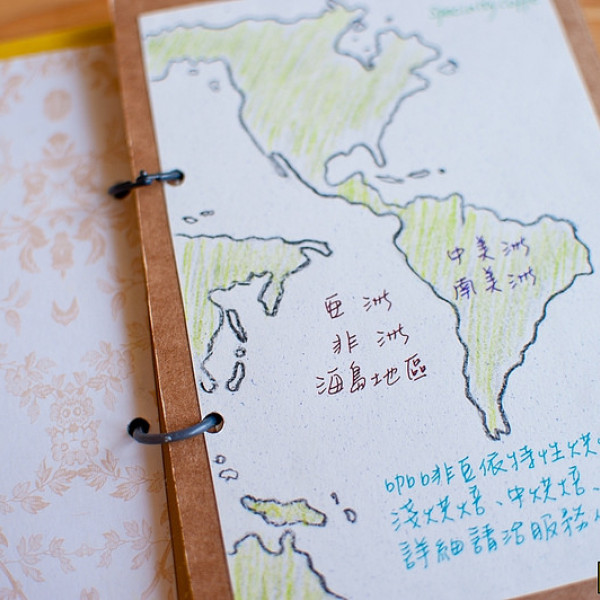 中美洲
南美洲
亞洲
非洲
海島地區
咖啡豆依特性烘
淺烘焙、中烘焙、
詳細請洽服務